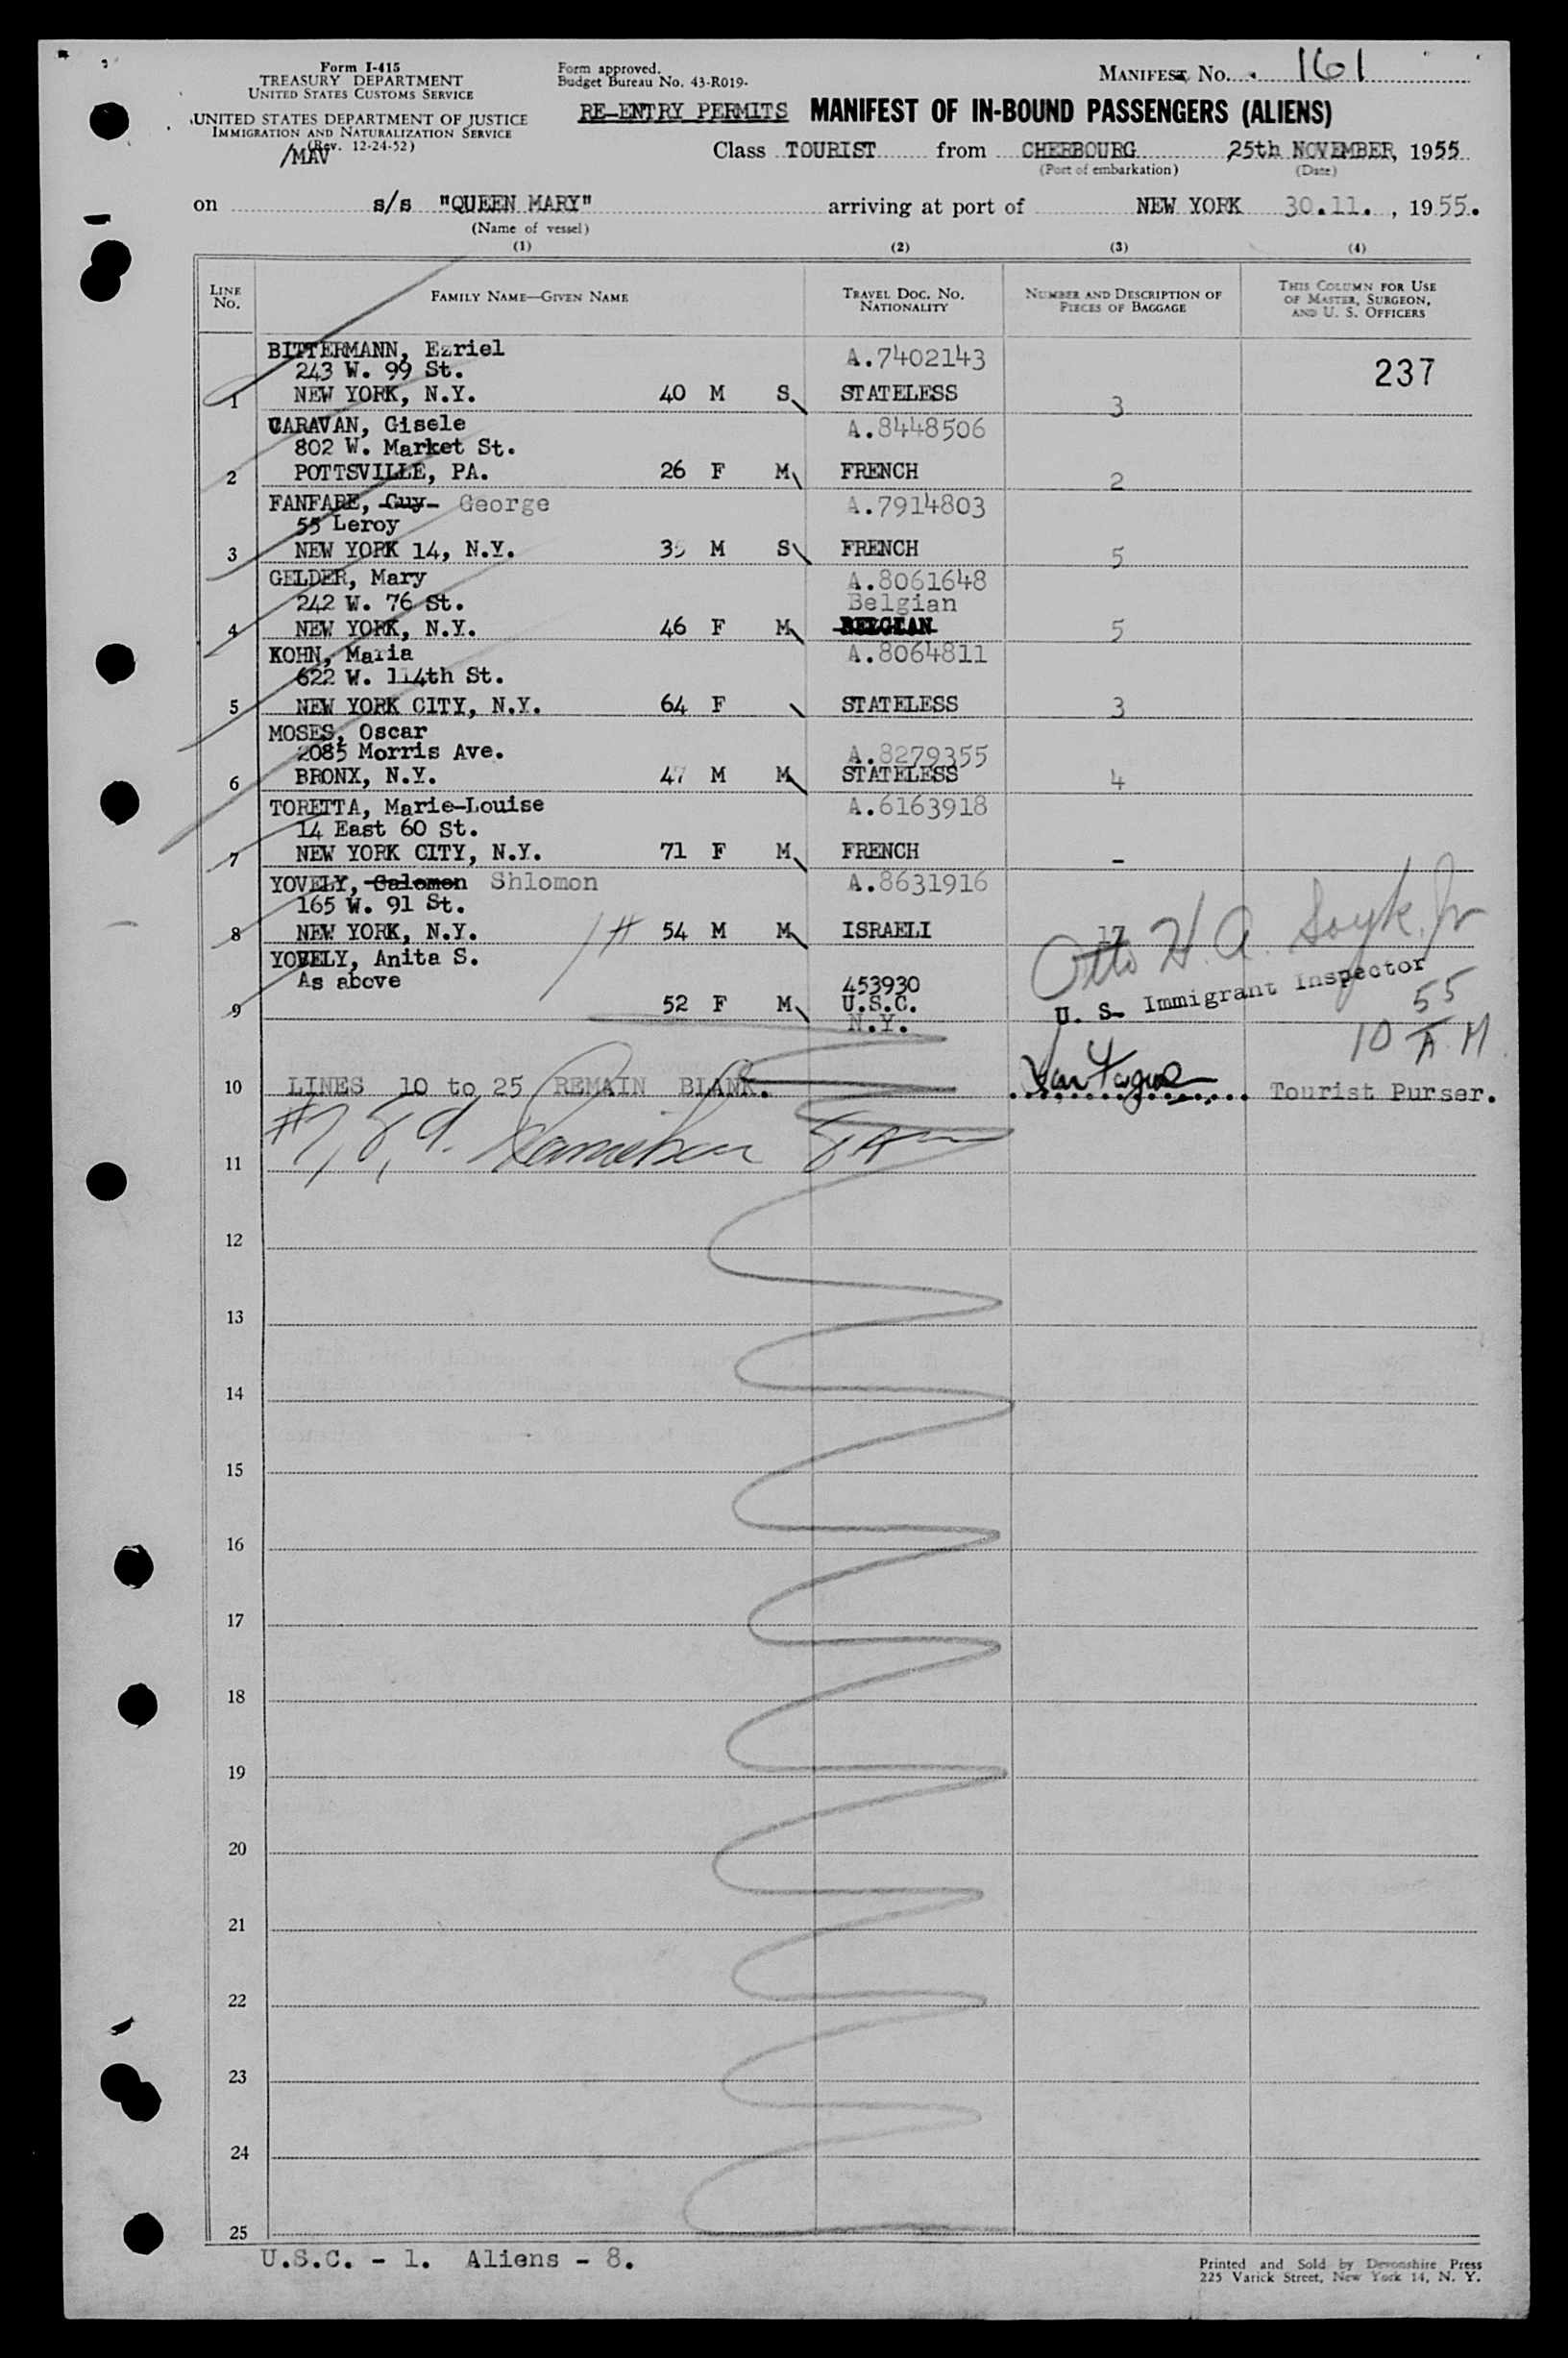 Form I-415
TREASURY DEPARTMENT
UNITED STATES CUSTOMS SERVICE
UNITED STATES DEPARTMENT OF JUSTICE
IMMIGRATION AND NATURALIZATION SERVICE
(Rev. 12-24-52)
/MAV
Form approved.
Budget Bureau No. 43-R019-
MANIFEST No. 161
RE-ENTRY PERMITS MANIFEST OF IN-BOUND PASSENGERS (ALIENS)
Class TOURIST from CHERBOURG 25th NOVEMBER, 1955
(Port of embarkation) (Date)
on s/s "QUEEN MARY" arriving at port of NEW YORK 30.11. , 1955.
(Name of vessel)
(1) (2) (3) (4)
LINE No. FAMILY NAME—GIVEN NAME TRAVEL DOC. NO. NATIONALITY NUMBER AND DESCRIPTION OF PIECES OF BAGGAGE THIS COLUMN FOR USE OF MASTER, SURGEON, AND U. S. OFFICERS
BITTERMANN, Ezriel A.7402143
243 W. 99 St. 237
1 NEW YORK, N.Y. 40 M S STATELESS 3
CARAVAN, Gisele A.8448506
802 W. Market St.
2 POTTSVILLE, PA. 26 F M FRENCH 2
FANFARE, Guy George A.7914803
55 Leroy
3 NEW YORK 14, N.Y. 35 M S FRENCH 5
GELDER, Mary A.8061648
242 W. 76 St. Belgian
4 NEW YORK, N.Y. 46 F M BELGIAN 5
KOHN, Maria A.8064811
622 W. 114th St.
5 NEW YORK CITY, N.Y. 64 F STATELESS 3
MOSES, Oscar
2085 Morris Ave. A.8279355
6 BRONX, N.Y. 47 M M STATELESS 4
TORETTA, Marie-Louise A.6163918
14 East 60 St.
7 NEW YORK CITY, N.Y. 71 F M FRENCH -
YOVELY, Salomon Shlomon A.8631916
165 W. 91 St.
8 NEW YORK, N.Y. 54 M M ISRAELI 17
Otto H. A.
YOVELY, Anita S.
As above 453930
U. S. Immigrant Inspector
9 52 F M U.S.C.
N.Y.
10 55 A M
10 LINES 10 to 25 REMAIN BLANK. Tourist Purser.
#7, 8, 9.
11
12
13
14
15
16
17
18
19
20
21
22
23
24
25
U.S.C. - 1. Aliens - 8.
Printed and Sold by Devonshire Press
225 Varick Street, New York 14, N. Y.